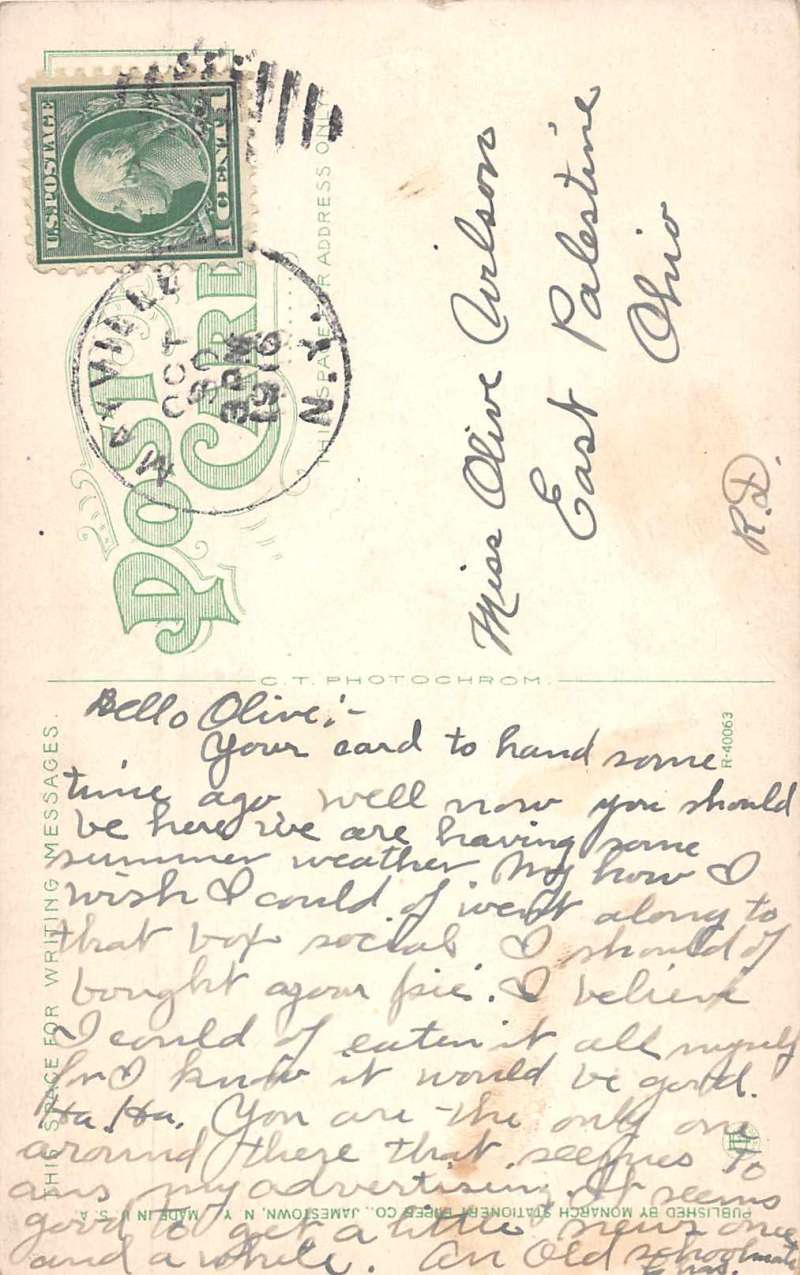 U.S. POSTAGE
1 CENT 1
MAYVILLE
OCT
30
3 PM
1916
N.Y.
POST CARD
THIS SPACE FOR ADDRESS ONLY
Miss Olive Wilson
East Palestine
Ohio
R.D.
C.T. PHOTOCHROM.
R-40063
THIS SPACE FOR WRITING MESSAGES.
Hello Olive:-
Your card to hand some
time ago well now you should
be here we are having some
summer weather. My how I
wish I could of went along to
that box social I should of
bought your pie. I believe
I could of eaten it all myself
for I know it would be good.
Ha. Ha. You are the only one
around there that seems to
ans my advertising. It seems
good to get a little news once
and a while. An Old schoolmate
PUBLISHED BY MONARCH STATIONERY & PAPER CO., JAMESTOWN, N. Y. MADE IN U. S. A.